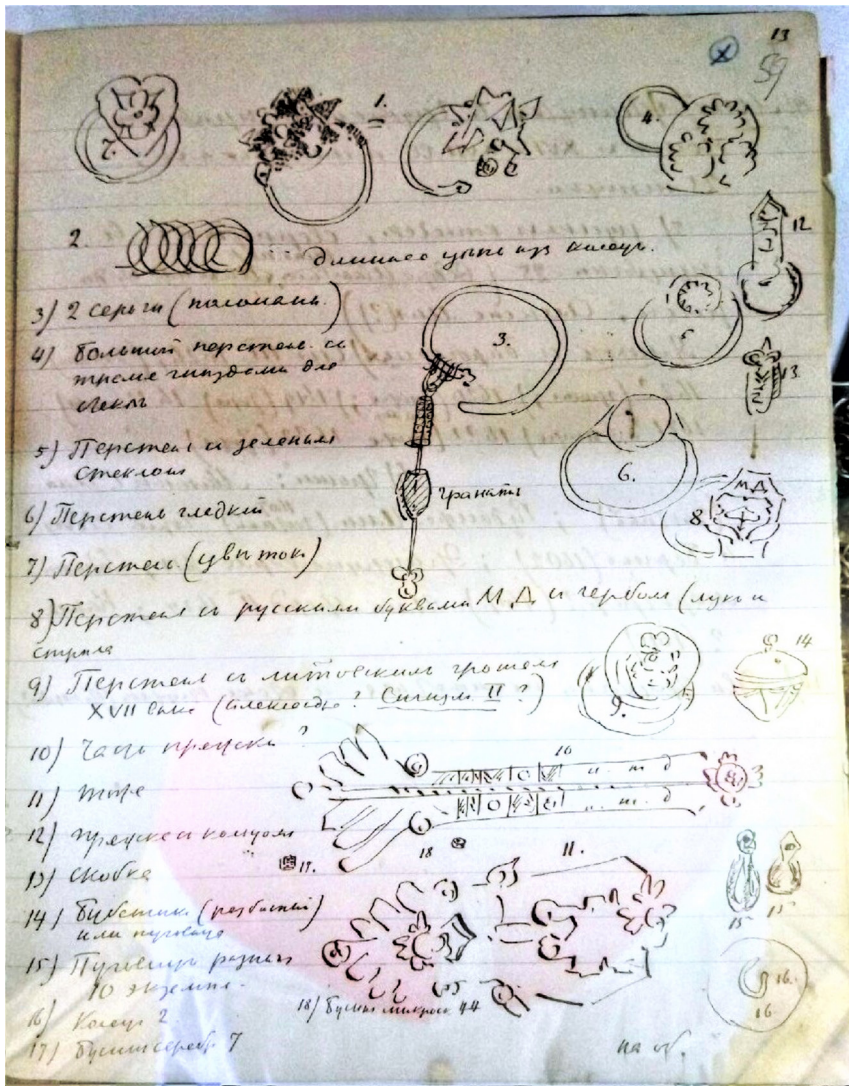 13
59
7.
1.
4.
2.
длинная цепь из колец.
12
3) 2 серьги (поломаны)
3.
5
4) большой перстень с
тремя гнездами для
стекол
13
5) Перстень с зеленым
стеклом
6.
гранаты
6) Перстень гладкий
8
МД
7) Перстень (цветок)
8) Перстень с русскими буквами М.Д. и гербом (лук и
стрела
9) Перстень с литовским грошем
XVII века (Александр? Сигизм II?)
9.
14
10) Часть пряжки?
10
и. т. д
11) тоже
и. т. д
12) пряжка с концом
17.
18
11.
13) скобка
14) Бубенчик (разбитый)
или пуговица
15
15
15) Пуговицы разные
10 экземпл.
16.
16
18) Бусины микроск 44
16) Кольца 2
17) Бусины серебр 7
на об.